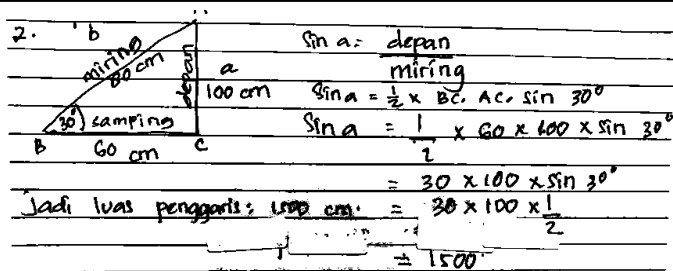 2. b
miring
80 cm
depan
a
100 cm
30° samping
B 60 cm C
Sin a = depan
miring
Sin a = 1/2 x BC. AC. sin 30°
Sin a = 1/2 x 60 x 100 x sin 30°
= 30 x 100 x sin 30°
Jadi luas penggaris: 1500 cm. = 30 x 100 x 1/2
= 1500